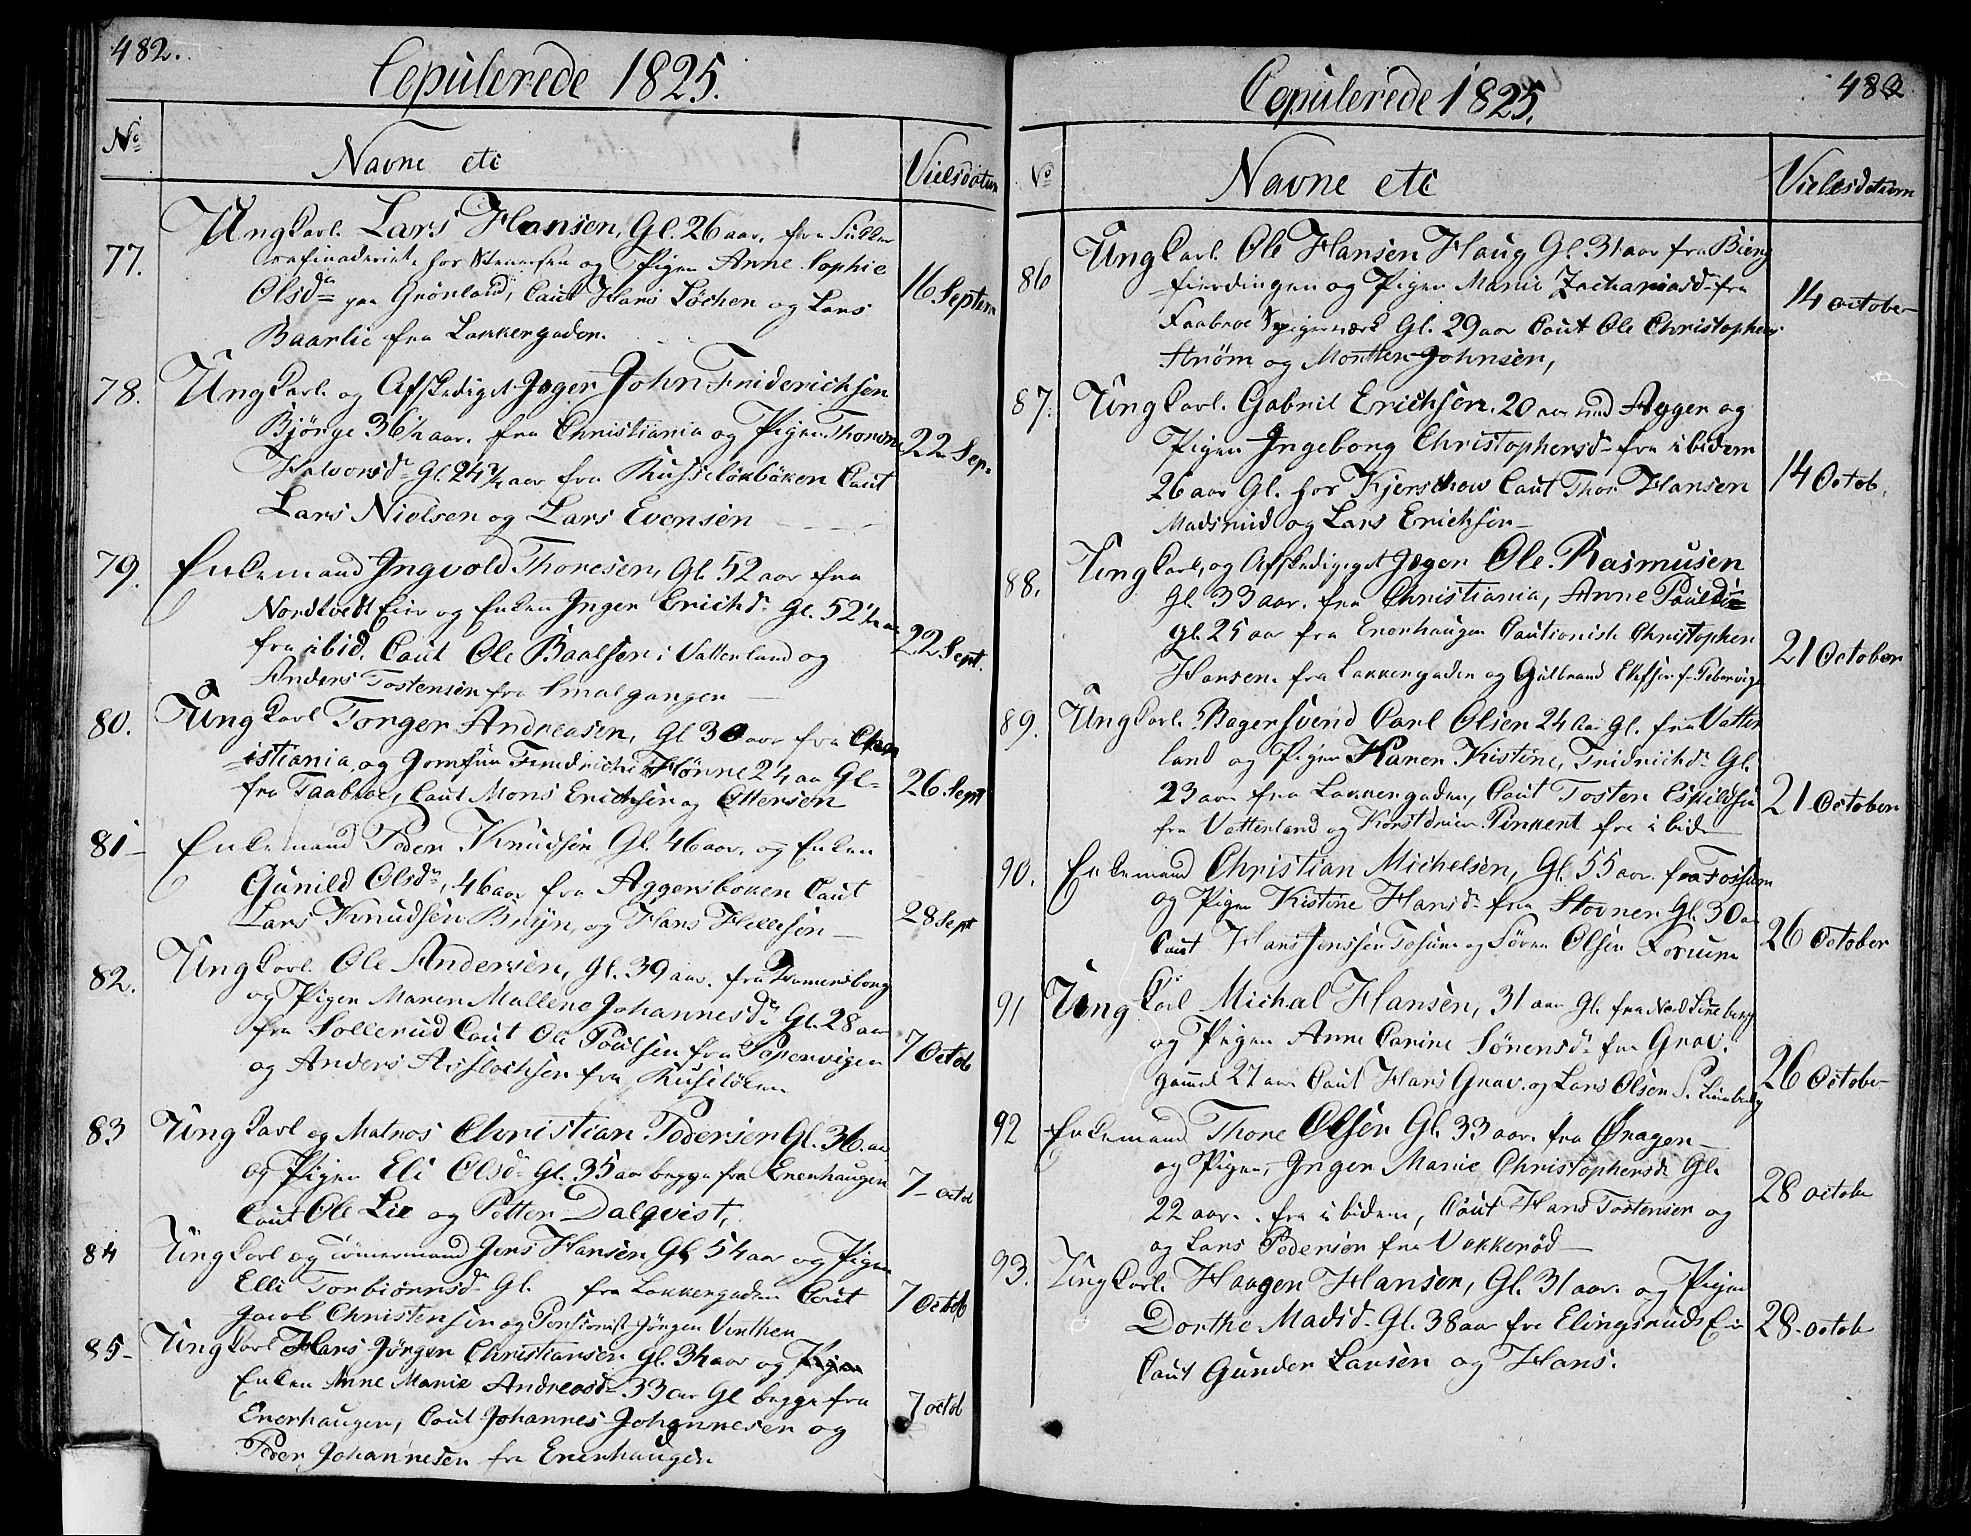 482.
Copulerede 1825.
No
Navne etc
Vielsdatum
77.
Ungkarl Lars Hansen, Gl. 26 aar, fra Sukker
rafinaderiet hos og Pigen Anne Sophie
Olsdr paa Grönland, Caut Hans Löchen og Lars
Baarlie fra Lakkergaden.
16 Septem
78.
Ungkarl og Afskediget Jæger John Friderichsen
Bjönge 36½ aar. fra Christiania og Pigen Thorine
Halvorsdr Gl. 24½ aar fra Russelökbakken Caut
Lars Nielsen og Lars Evensen
22 Sep.
79.
Enkemand Ingvold Thoresen, Gl. 52 aar fra
Nordtvedt Eier og Enken Inger Erichdr Gl. 52½ aar
fra ibid. Caut Ole Baalsen i Vatterland og
Anders Tostensen fra Smalgangen
22 Sept.
80.
Ungkarl Torger Andreasen, Gl 30 aar fra Chri
istiania, og Jomfru Fredriche Hönne 24 aar Gl-
fra Faabroe, Caut Mons Erichsen og Ottersen
26 Sept
81-
Enkemand Peder Knudsen Gl. 46 aar. og Enken
Gunild Olsdr, 46 aar fra Aggersbakken Caut
Lars Knudsen Bruyn, og Hans Hellesen
28 Sept
82.
Ungkarl Ole Andersen, Gl. 39 aar. fra
og Pigen Maren Mallene Johannesdr Gl. 28 aar
fra Sollerud Caut Ole Poulsen fra Pipervigen
og Anders Aslachsen fra Ruselökken
7 Octob
83
Ungkarl og Matros Christian Pedersen Gl. 36. aar
og Pigen Eli Olsdr Gl. 35 aar begge fra Enerhaugen
Caut Ole Lie og Petter Dalqvist,
7- octob
84
Ungkarl og Tömermand Jens Hansen Gl. 54 aar og Pigen
Elli Torbiörnsdr Gl. fra Lakkergaden Caut
Jacob Christensen og Pensionist Jörgen Vinther
7 Octob
85-
Ungkarl Hans Jörgen Christiansen Gl. 34 aar og Pigen
Enken Anne Marie Andreasdr 33 aar Gl begge fra
Enerhaugen, Caut Johannes Johannesen og
Peder Johannesen fra Enerhaugen
7 octob
483
Copulerede 1825.
No
Navne etc
Vielsdatum
86
Ungkarl Ole Hansen Haug Gl. 31 aar fra Bierg
fierdingen og Pigen Marie Zachariasdr fra
Faabroe Spigerværk Gl. 29 aar Caut Ole Christophers
Ström og Morthen Johnsen,
14 october
87.
Ungkarl Gabriel Erichsen 20 aar ved Agger og
Pigen Ingeborg Christophersdr fra ibidem
26 aar Gl. hos Kjerschow Caut Thor Hansen
Madsrud og Lars Erichsen
14 Octob.
88.
Ungkarl, og Afskediget Jæger Ole Rasmusen
Gl. 33 aar. fra Christiania, Anne Pouldr
Gl. 25 aar fra Enerhaugen Cautionist Christopher
Hansen fra Lakkergaden og Gulbrand Ellefsen f. Pebervigen
21 October
89.
Ungkarl Bagersvend Carl Olsen 24 aar Gl. fra Vatter
land og Pigen Karen Kistine, Fridrichdr Gl.
23 aar fra Lakkergaden, Caut Tosten Eskildsen
fra Vatterland og fra ibid
21 October
90.
Enkemand Christian Michelsen, Gl. 55 aar. fra Fossum
og Pigen Kistine Hansdr fra Stovner Gl. 30 aar
Caut Hans Jenssen Fosum og Sören Olsen
26 October
91
Ungkarl Michal Hansen, 31 aar Gl. fra Nord Lineberg
og Pigen Anne Carine Sörensdr fra Grav.
gammel 27 aar Caut Hans Grav. og Lars Olsen S. Lineberg
26 October
92
Enkemand Thore Olsen Gl. 33 aar. fra Öragen
og Pigen, Inger Marie Christophersdr Gl.
22 aar. fra ibidem, Caut Hans Tostensen og
og Lars Pedersen fra Vækkeröd
28 octobr
93.
Ungkarl Haagen Hansen, Gl. 31 aar. og Pigen
Dorthe Madsdr Gl. 38 aar fra Elingsruds Eie
Caut Gunder Larsen og Hans.
28. octob